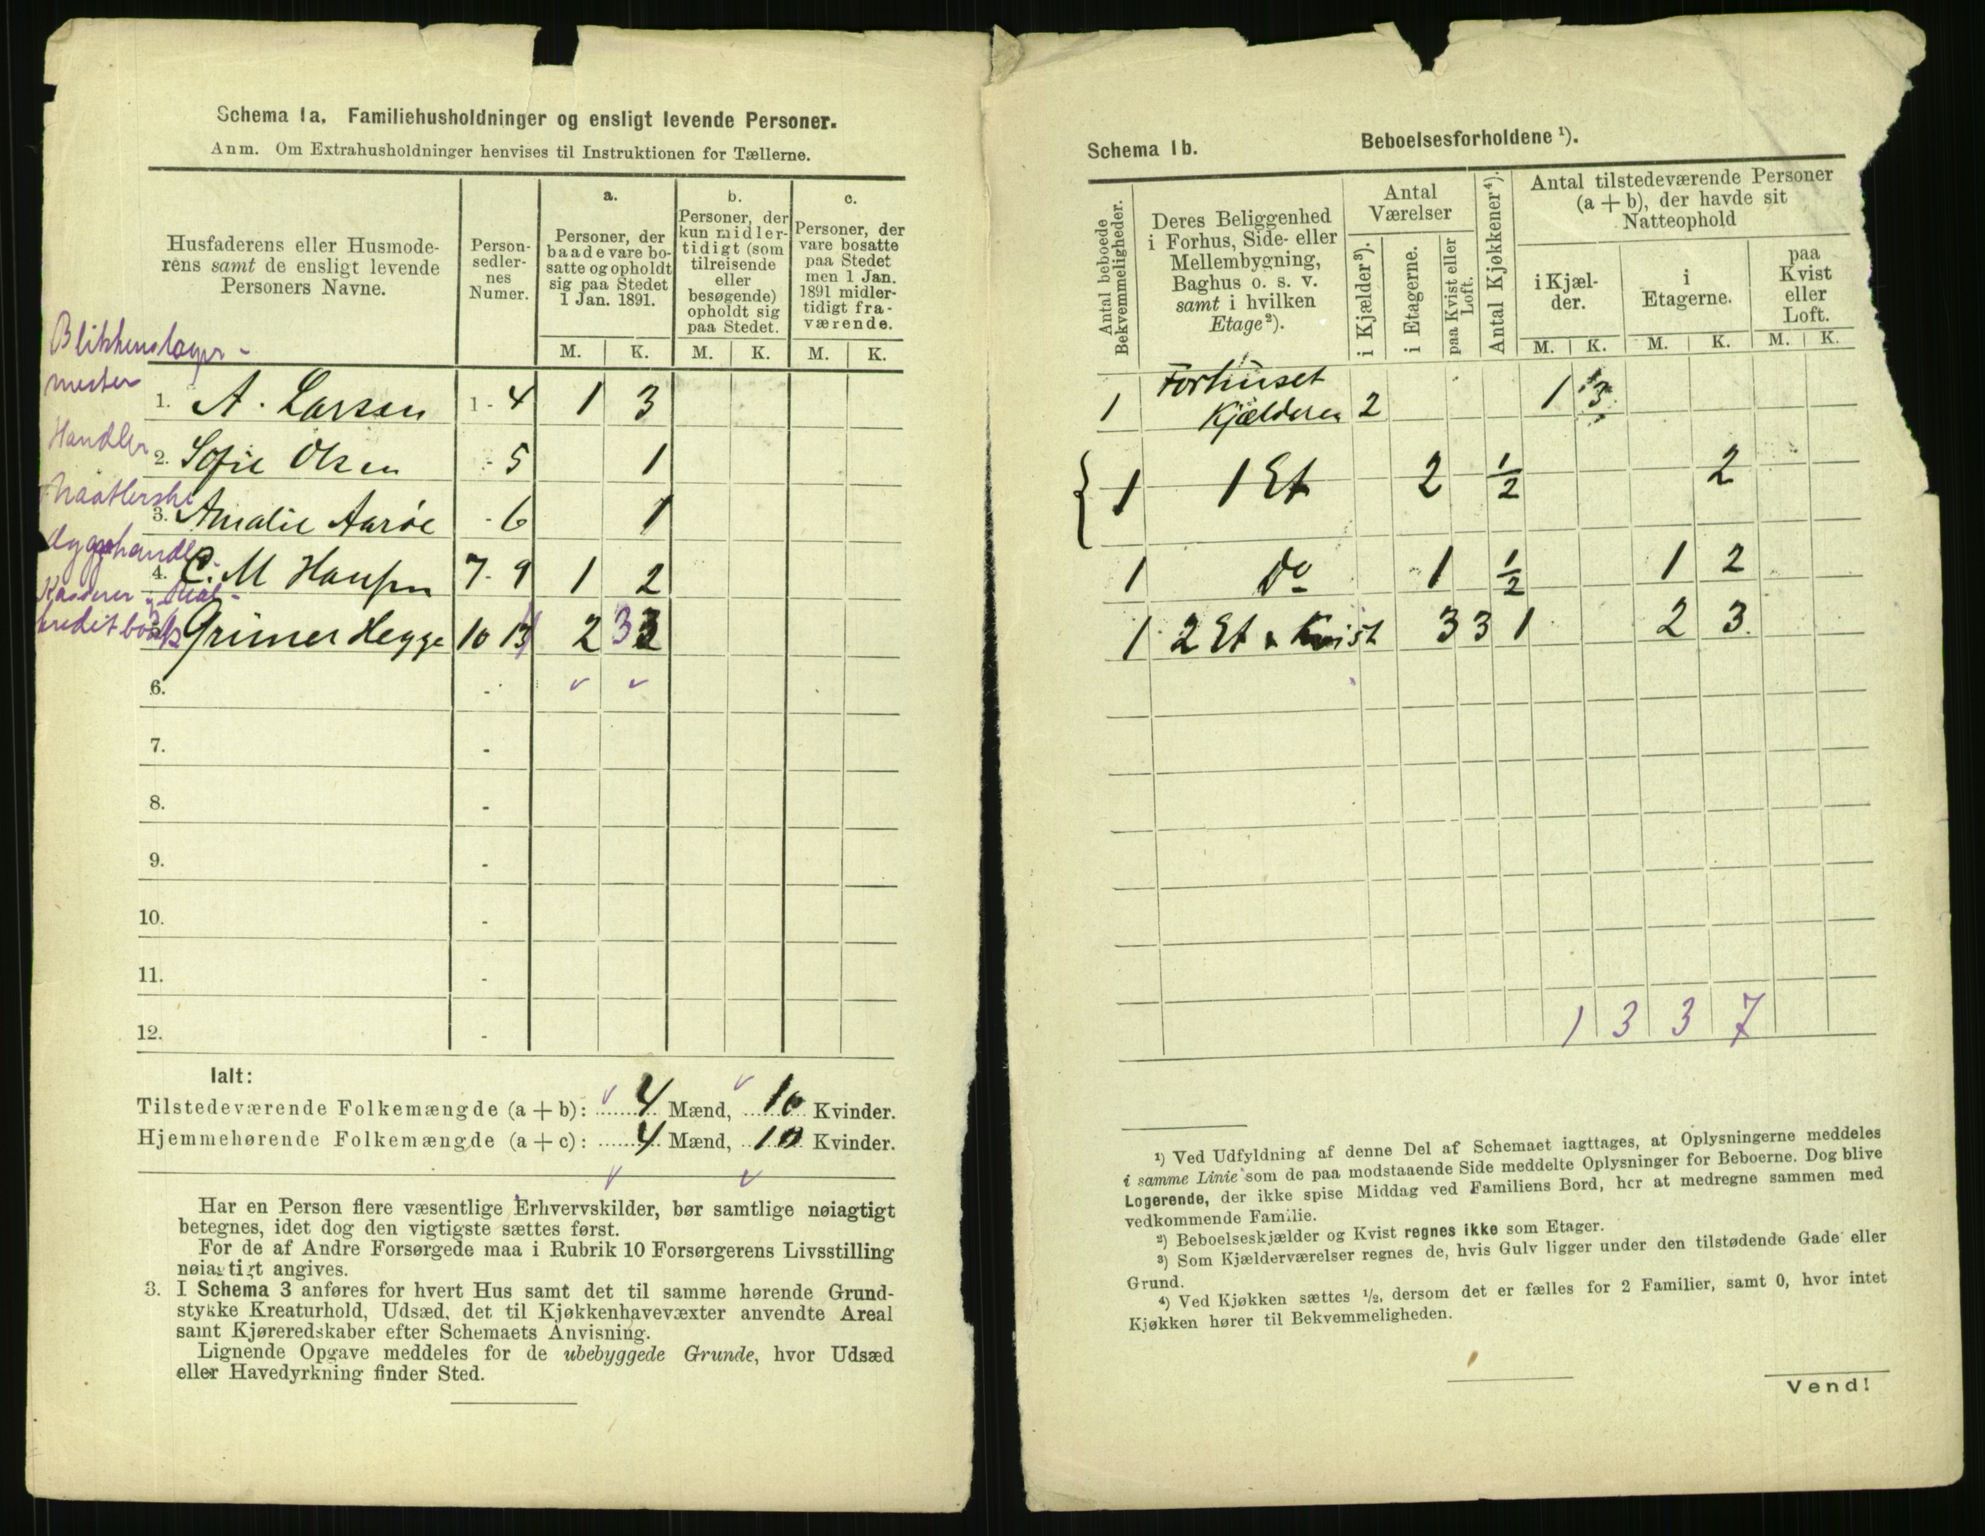 Schema 1a. Familiehusholdninger og ensligt levende Personer.
Anm. Om Extrahusholdninger henvises til Instruktionen for Tællerne.
Husfaderens eller Husmode-
rens samt de ensligt levende
Personers Navne.
Person-
sedler-
nes
Numer.
a.
Personer, der
baade vare bo-
satte og opholdt
sig paa Stedet
1 Jan. 1891.
b.
Personer, der
kun midler-
tidigt (som
tilreisende
eller
besøgende)
opholdt sig
paa Stedet.
c.
Personer, der
vare bosatte
paa Stedet
men 1 Jan.
1891 midler-
tidigt fra-
værende.
M. K. M. K. M. K.
Blikkenslager-
mester
1. A. Larsen 1-4 1 3
Handler
2. Sofie Olsen - 5 1
3. Amalie Aarøe - 6 1
4. C. M Hansen 7-9 1 2
Kasserer
Grimer Hegge 10 13 2 3
6. -
7. -
8. -
9. -
10. -
11. -
12. -
Ialt:
Tilstedeværende Folkemængde (a + b): 4 Mænd, 10 Kvinder.
Hjemmehørende Folkemængde (a + c): 4 Mænd, 10 Kvinder.
Har en Person flere væsentlige Erhvervskilder, bør samtlige nøiagtigt
betegnes, idet dog den vigtigste sættes først.
For de af Andre Forsørgede maa i Rubrik 10 Forsørgerens Livsstilling
nøiagtigt angives.
3. I Schema 3 anføres for hvert Hus samt det til samme hørende Grund-
stykke Kreaturhold, Udsæd, det til Kjøkkenhavevæxter anvendte Areal
samt Kjøreredskaber efter Schemaets Anvisning.
Lignende Opgave meddeles for de ubebyggede Grunde, hvor Udsæd
eller Havedyrkning finder Sted.
Schema 1b. Beboelsesforholdene ¹).
Antal beboede
Bekvemmeligheder.
Deres Beliggenhed
i Forhus, Side- eller
Mellembygning,
Baghus o. s. v.
samt i hvilken
Etage²).
Antal
Værelser
i Kjælder³).
i Etagerne.
paa Kvist eller
Loft.
Antal Kjøkkener⁴).
Antal tilstedeværende Personer
(a + b), der havde sit
Natteophold
i Kjæl-
der.
i
Etagerne.
paa
Kvist
eller
Loft.
M. K. M. K. M. K.
1 Forhuset
Kjælderen 2 1 3
1 1 Et 2 ½ 2
1 Do 1 ½ 1 2
1 2 Et & Kvist 3 3 1 2 3
1 3 3 7
¹) Ved Udfyldning af denne Del af Schemaet iagttages, at Oplysningerne meddeles
i samme Linie som de paa modstaaende Side meddelte Oplysninger for Beboerne. Dog blive
Logerende, der ikke spise Middag ved Familiens Bord, her at medregne sammen med
vedkommende Familie.
²) Beboelseskjælder og Kvist regnes ikke som Etager.
³) Som Kjælderværelser regnes de, hvis Gulv ligger under den tilstødende Gade eller
Grund.
⁴) Ved Kjøkken sættes ¹/₂, dersom det er fælles for 2 Familier, samt 0, hvor intet
Kjøkken hører til Bekvemmeligheden.
Vend!